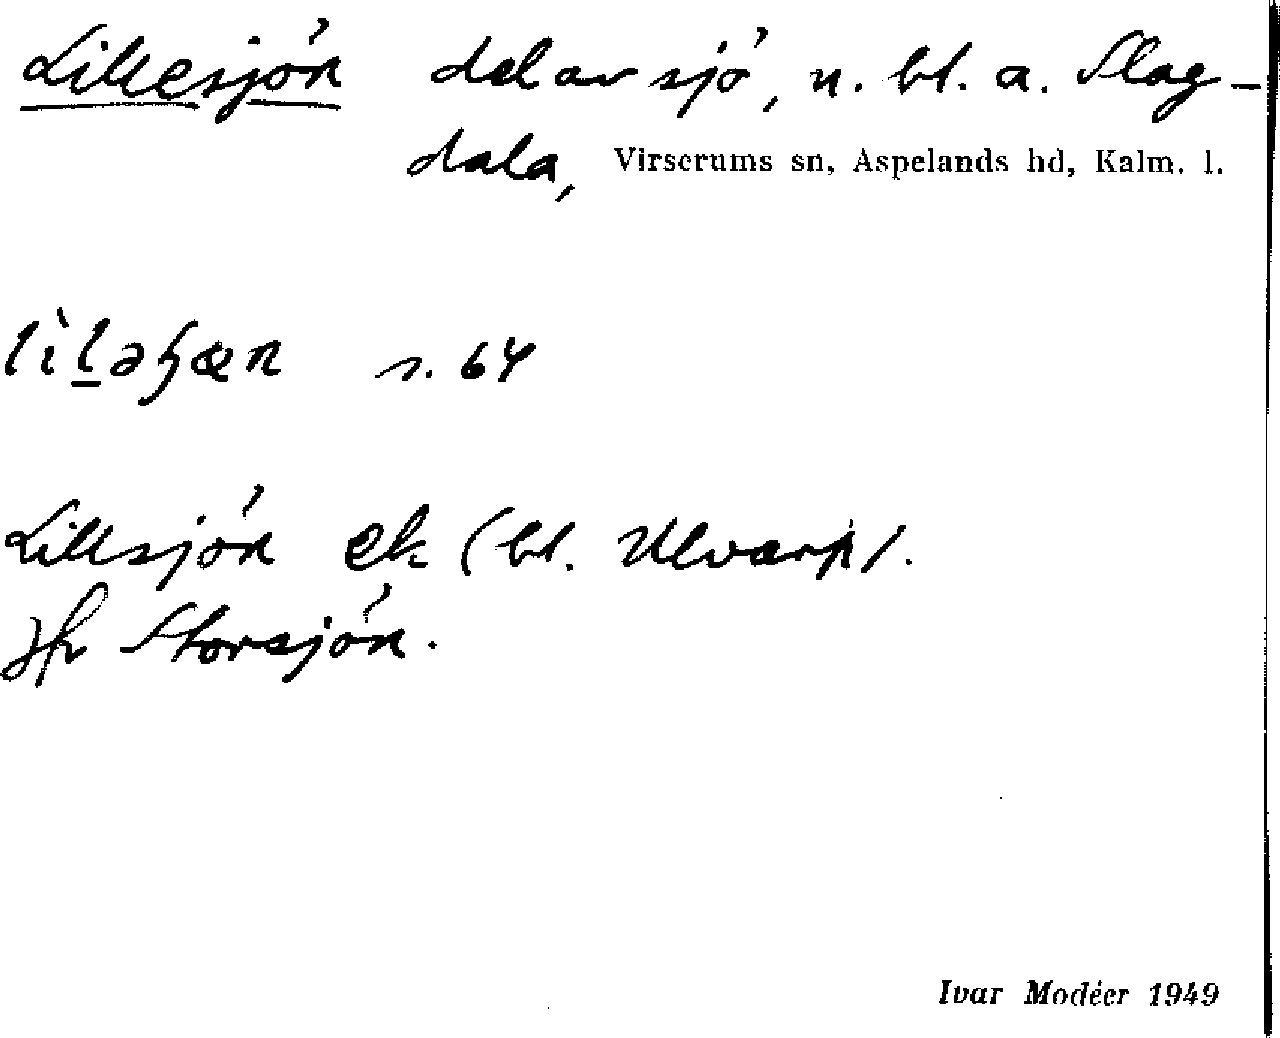 Lillesjön del av sjö, u. bl. a. Slag-
dala, Virserums sn, Aspelands hd, Kalm. l.
s. 64
Lillsjön ek (bl. Ulvarp).
Jfr Storsjön.
Ivar Modéer 1949